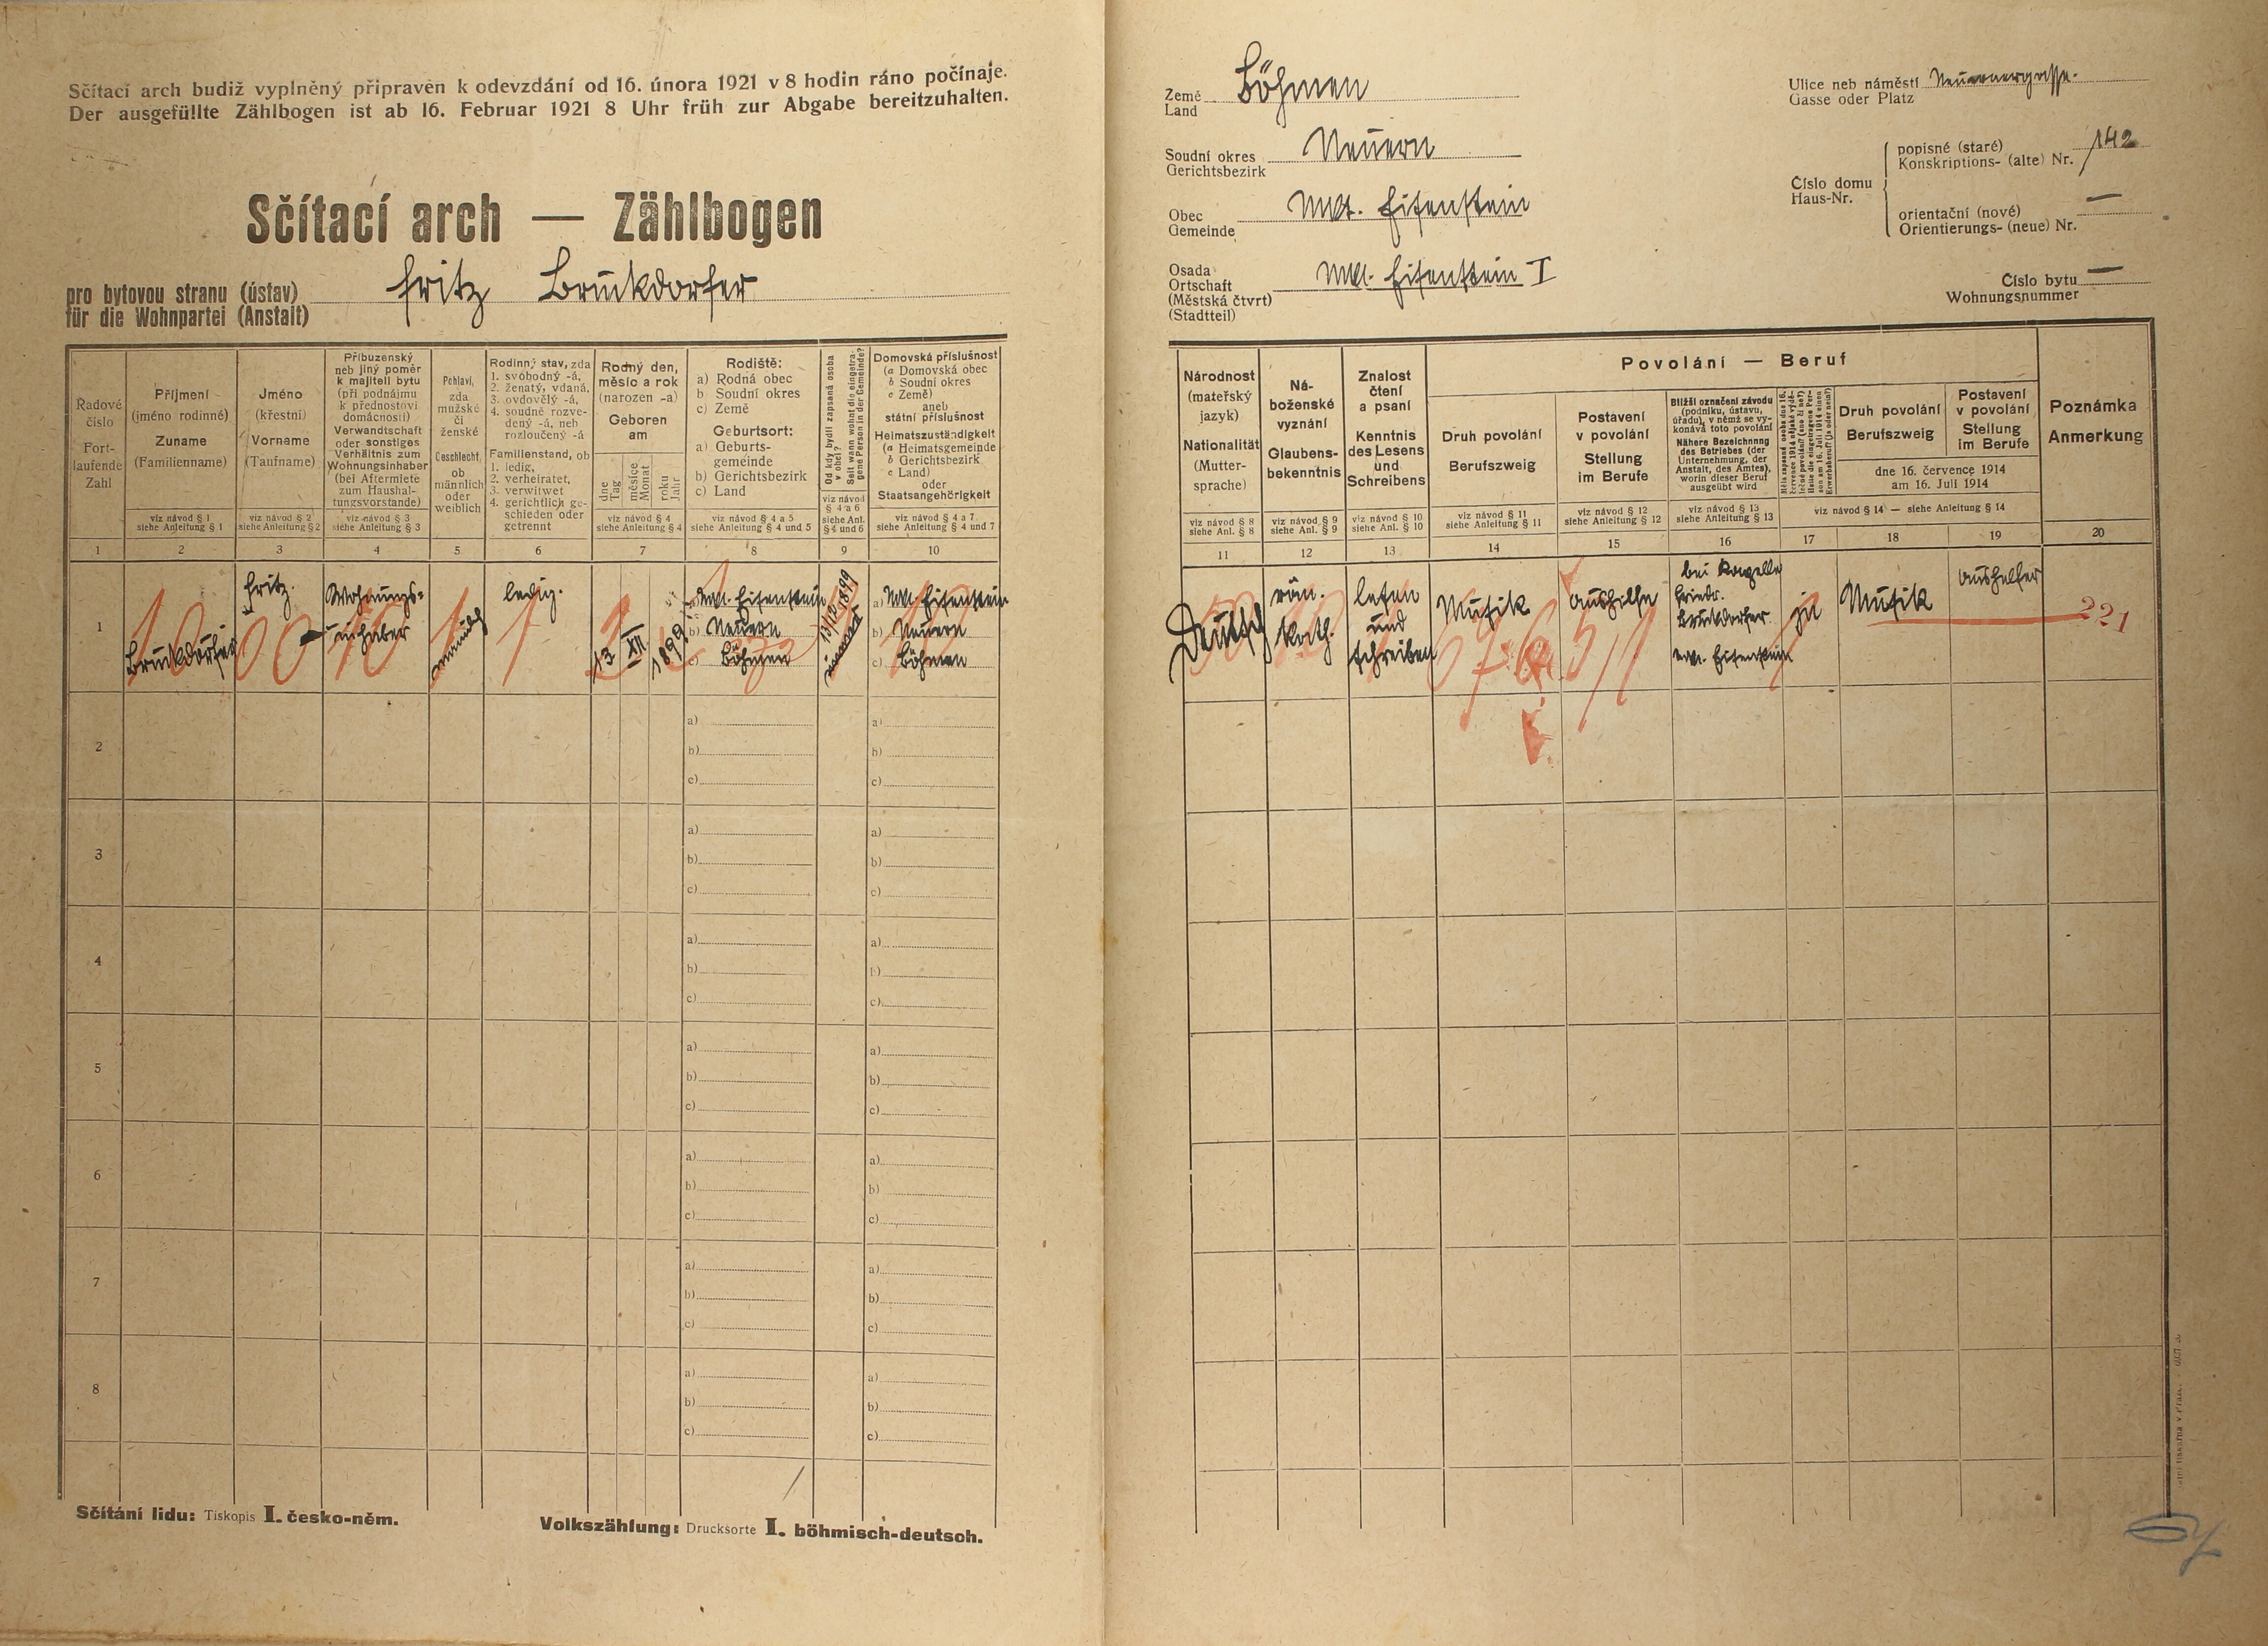 Sčítací arch budiž vyplněný připraven k odevzdání od 16. února 1921 v 8 hodin ráno počínaje.
Der ausgefüllte Zählbogen ist ab 16. Februar 1921 8 Uhr früh zur Abgabe bereitzuhalten.
Sčítací arch — Zählbogen
pro bytovou stranu (ústav)
für die Wohnpartei (Anstalt)
Fritz Bruckdorfer
Řadové
číslo
Fort-
laufende
Zahl
1
Příjmení
(jméno rodinné)
Zuname
(Familienname)
viz návod § 1
siehe Anleitung § 1
2
Jméno
(křestní)
Vorname
(Taufname)
viz návod § 2
siehe Anleitung § 2
3
Příbuzenský
neb jiný poměr
k majiteli bytu
(při podnájmu
k přednostovi
domácnosti)
Verwandtschaft
oder sonstiges
Verhältnis zum
Wohnungsinhaber
(bei Aftermiete
zum Haushal-
tungsvorstande)
viz návod § 3
siehe Anleitung § 3
4
Pohlaví,
zda
mužské
či
ženské
Geschlecht,
ob
männlich
oder
weiblich
5
Rodinný stav, zda
1. svobodný -á,
2. ženatý, vdaná,
3. ovdovělý -á,
4. soudně rozve-
dený -á, neb
rozloučený -á
Familienstand, ob
1. ledig,
2. verheiratet,
3. verwitwet
4. gerichtlich ge-
schieden oder
getrennt
6
Rodný den,
měsíc a rok
(narozen -a)
Geboren
am
dne
Tag
měsíce
Monat
roku
Jahr
viz návod § 4
siehe Anleitung § 4
7
Rodiště:
a) Rodná obec
b) Soudní okres
c) Země
Geburtsort:
a) Geburts-
gemeinde
b) Gerichtsbezirk
c) Land
viz návod § 4 a 5
siehe Anleitung § 4 und 5
8
Od kdy bydlí zapsaná osoba
v obci?
Seit wann wohnt die eingetra-
gene Person in der Gemeinde?
viz návod
§ 4 a 6
siehe Anl.
§ 4 und 6
9
Domovská příslušnost
(a Domovská obec
b Soudní okres
c Země)
aneb
státní příslušnost
Heimatszuständigkeit
(a Heimatsgemeinde
b Gerichtsbezirk
c Land)
oder
Staatsangehörigkeit
viz návod § 4 a 7
siehe Anleitung § 4 und 7
10
1
Bruckdorfer
Fritz.
Wohnungs-
inhaber
männlich
ledig.
13
XII.
1899
a) Mkt. Eisenstein
b) Neuern
c) Böhmen
13/12 1899
a) Mkt. Eisenstein
b) Neuern
c) Böhmen
2
a)
b)
c)
a)
b)
c)
3
a)
b)
c)
a)
b)
c)
4
a)
b)
c)
a)
b)
c)
5
a)
b)
c)
a)
b)
c)
6
a)
b)
c)
a)
b)
c)
7
a)
b)
c)
a)
b)
c)
8
a)
b)
c)
a)
b)
c)
Sčítání lidu: Tiskopis I. česko-něm.
Volkszählung: Drucksorte I. böhmisch-deutsch.
Země
Land
Böhmen
Soudní okres
Gerichtsbezirk
Neuern
Obec
Gemeinde
Mkt. Eisenstein
Osada
Ortschaft
(Městská čtvrt)
(Stadtteil)
Mkt. Eisenstein I
Ulice neb náměstí
Gasse oder Platz
Neuernergasse.
Číslo domu
Haus-Nr.
popisné (staré)
Konskriptions- (alte) Nr.
142
orientační (nové)
Orientierungs- (neue) Nr.
—
Číslo bytu
Wohnungsnummer
—
Národnost
(mateřský
jazyk)
Nationalität
(Mutter-
sprache)
viz návod § 8
siehe Anl. § 8
11
Ná-
boženské
vyznání
Glaubens-
bekenntnis
viz návod § 9
siehe Anl. § 9
12
Znalost
čtení
a psaní
Kenntnis
des Lesens
und
Schreibens
viz návod § 10
siehe Anl. § 10
13
Povolání — Beruf
Druh povolání
Berufszweig
viz návod § 11
siehe Anleitung § 11
14
Postavení
v povolání
Stellung
im Berufe
viz návod § 12
siehe Anleitung § 12
15
Bližší označení závodu
(podniku, ústavu,
úřadu), v němž se vy-
konává toto povolání
Nähere Bezeichnung
des Betriebes (der
Unternehmung, der
Anstalt, des Amtes),
worin dieser Beruf
ausgeübt wird
viz návod § 13
siehe Anleitung § 13
16
17
Druh povolání
Berufszweig
18
Postavení
v povolání
Stellung
im Berufe
19
dne 16. července 1914
am 16. Juli 1914
viz návod § 14 — siehe Anleitung § 14
Poznámka
Anmerkung
20
Deutsch
röm.
kath.
lesen
und
schreiben
Musik
Aushilfe
bei Kapelle
Friedr.
Bruckdorfer
Mkt. Eisenstein
ja
Musik
Aushelfer
221